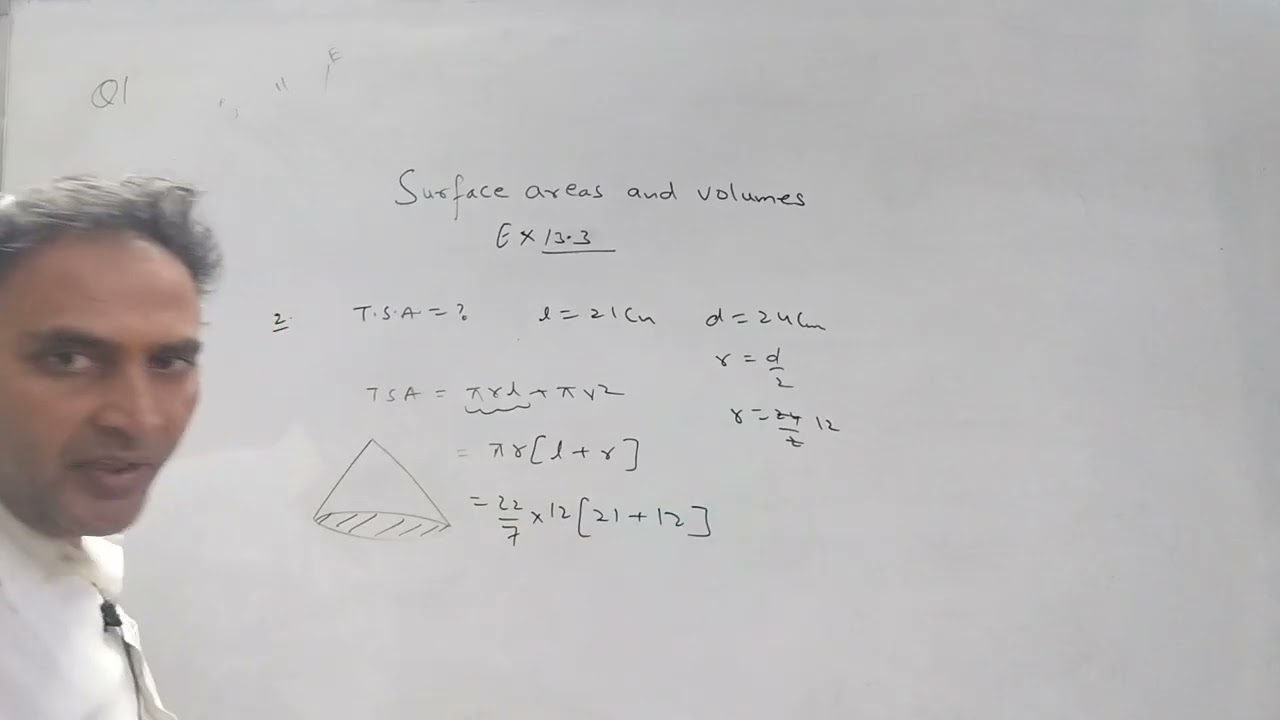 Q1
E
Surface areas and volumes
Ex 13.3
2. T.S.A = ? l = 21cm d = 24cm
r = d/2
TSA = πrl + πr2
r = 24/2 12
= πr[l + r]
= 22/7 × 12[21 + 12]